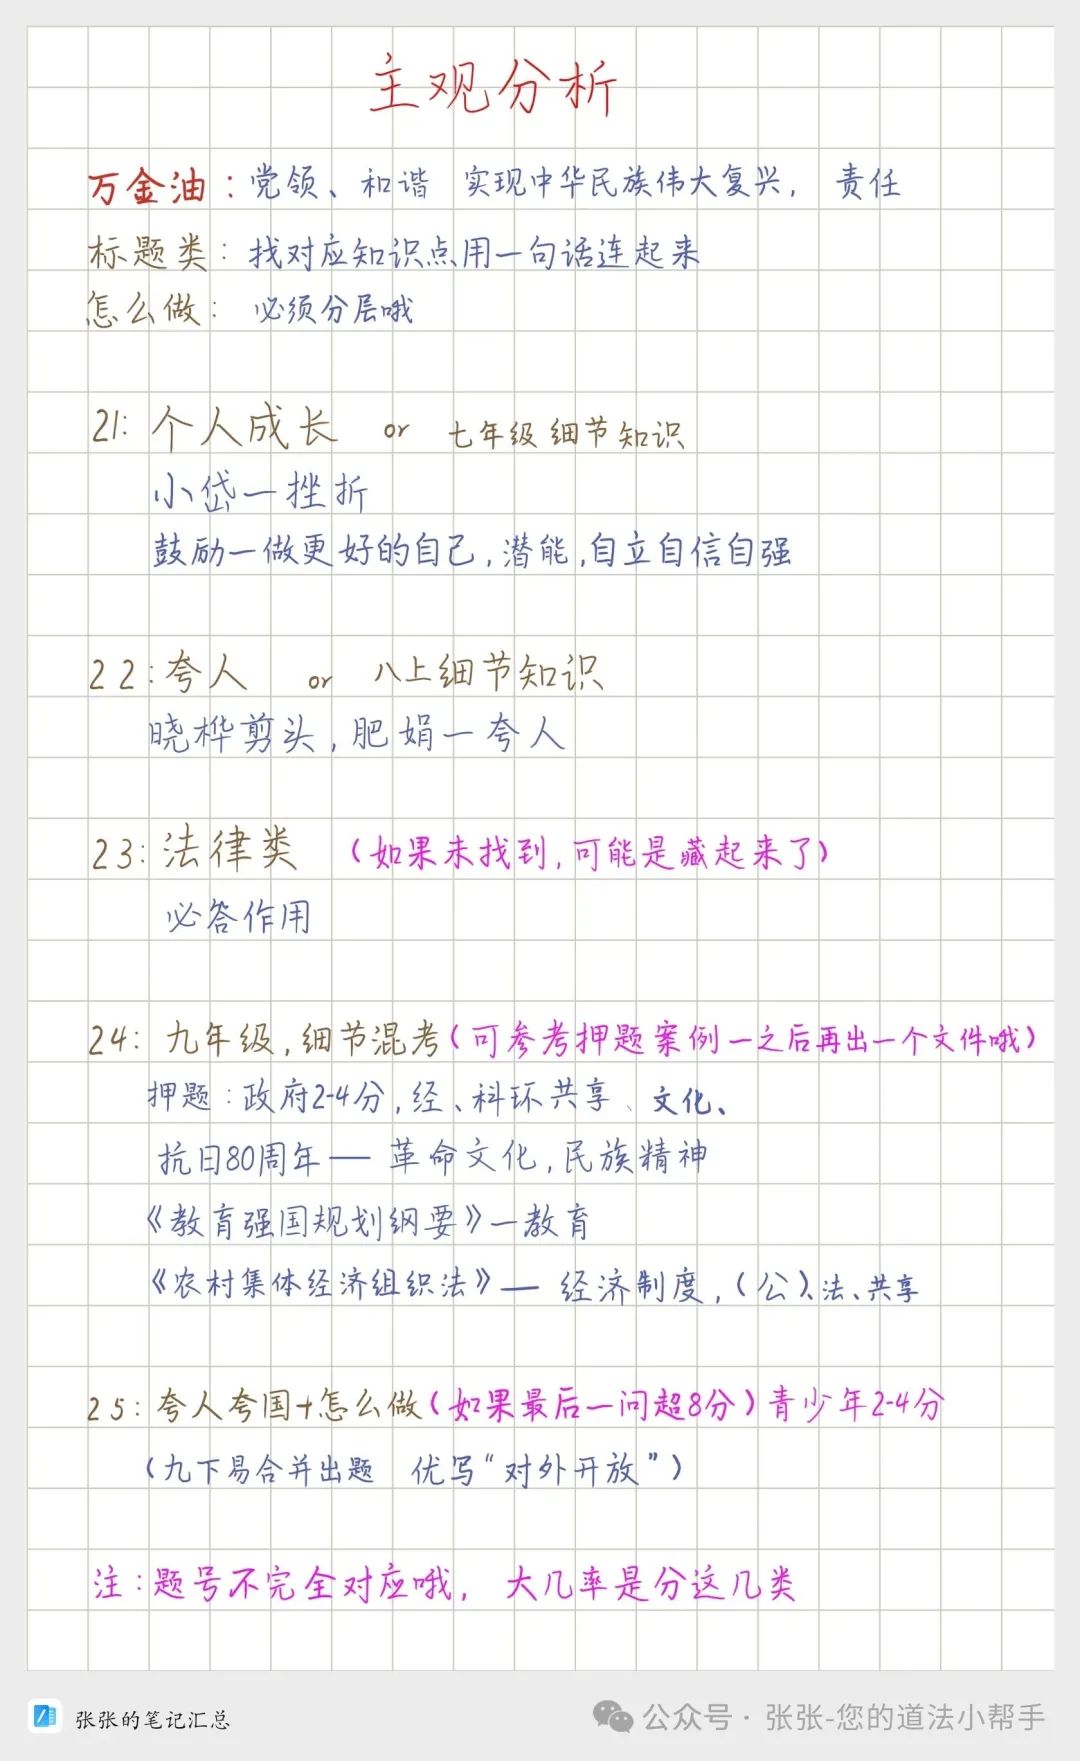 主观分析
万金油：党领、和谐 实现中华民族伟大复兴， 责任
标题类：找对应知识点用一句话连起来
怎么做： 必须分层哦
21: 个人成长 or 七年级细节知识
小岱一挫折
鼓励一做更好的自己,潜能,自立自信自强
22:夸人 or 八上细节知识
晓桦剪头,肥娟一夸人
23:法律类 (如果未找到,可能是藏起来了)
必答作用
24: 九年级,细节混考(可参考押题案例一之后再出一个文件哦)
押题:政府2-4分,经、科环共享、文化、
抗日80周年——革命文化,民族精神
《教育强国规划纲要》—教育
《农村集体经济组织法》— 经济制度,(公)、法、共享
25:夸人夸国+怎么做(如果最后一问超8分)青少年2-4分
(九下易合并出题 优写“对外开放”)
注:题号不完全对应哦, 大几率是分这几类
张张的笔记汇总
公众号·张张-您的道法小帮手